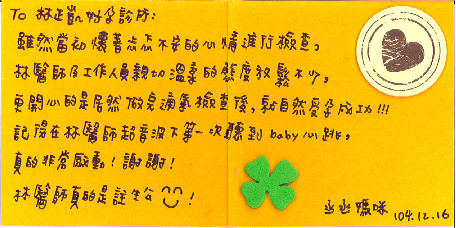 To 林正凱好孕診所:
雖然當初懷著忐忑不安的心情進行檢查,
林醫師及工作人員親切溫柔的態度放鬆不少,
更開心的是居然做完通氣檢查後,就自然受孕成功!!!
記得在林醫師超音波下第一次聽到baby心跳,
真的非常感動!謝謝!
林醫師真的是註生公 !
丞丞媽咪
104.12.16